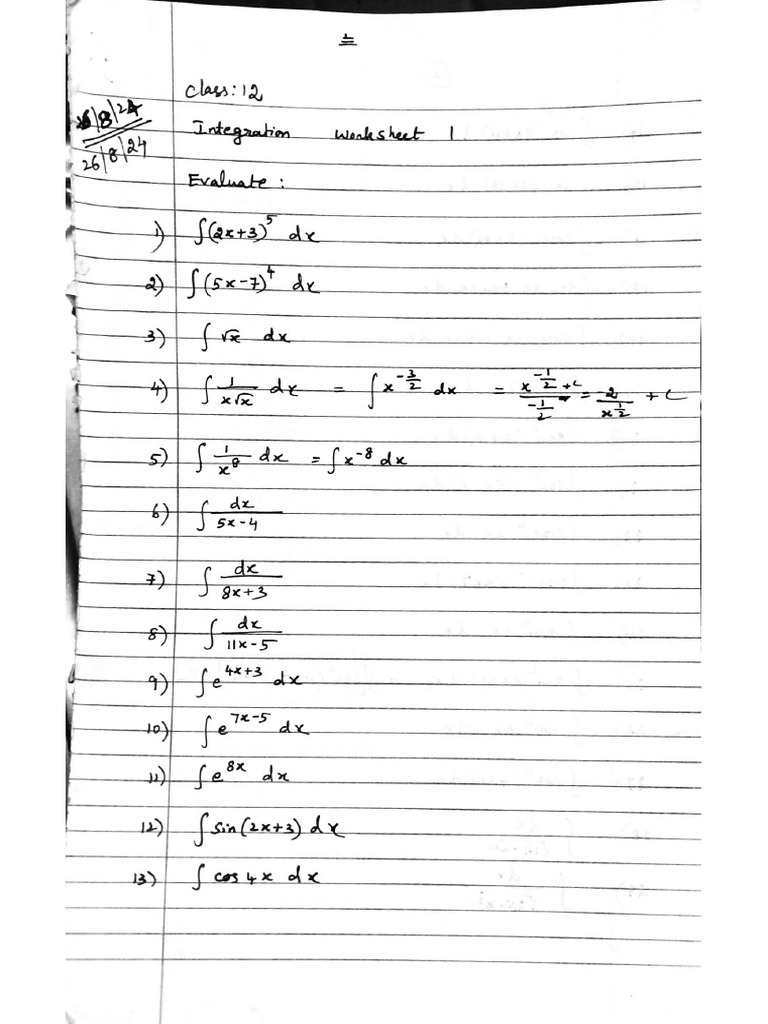 1
Class: 12
26/8/24
Integration Worksheet 1
26/8/24
Evaluate :
1) ∫(2x+3)^5 dx
2) ∫(5x-7)^4 dx
3) ∫ √x dx
4) ∫ 1/(x√x) dx = ∫ x^(-3/2) dx = x^(-1/2)/(-1/2) + c = 2/x^(1/2) + C
5) ∫ 1/x^8 dx = ∫ x^-8 dx
6) ∫ dx/(5x-4)
7) ∫ dx/(8x+3)
8) ∫ dx/(11x-5)
9) ∫ e^(4x+3) dx
10) ∫ e^(7x-5) dx
11) ∫ e^(8x) dx
12) ∫ sin(2x+3) dx
13) ∫ cos 4x dx